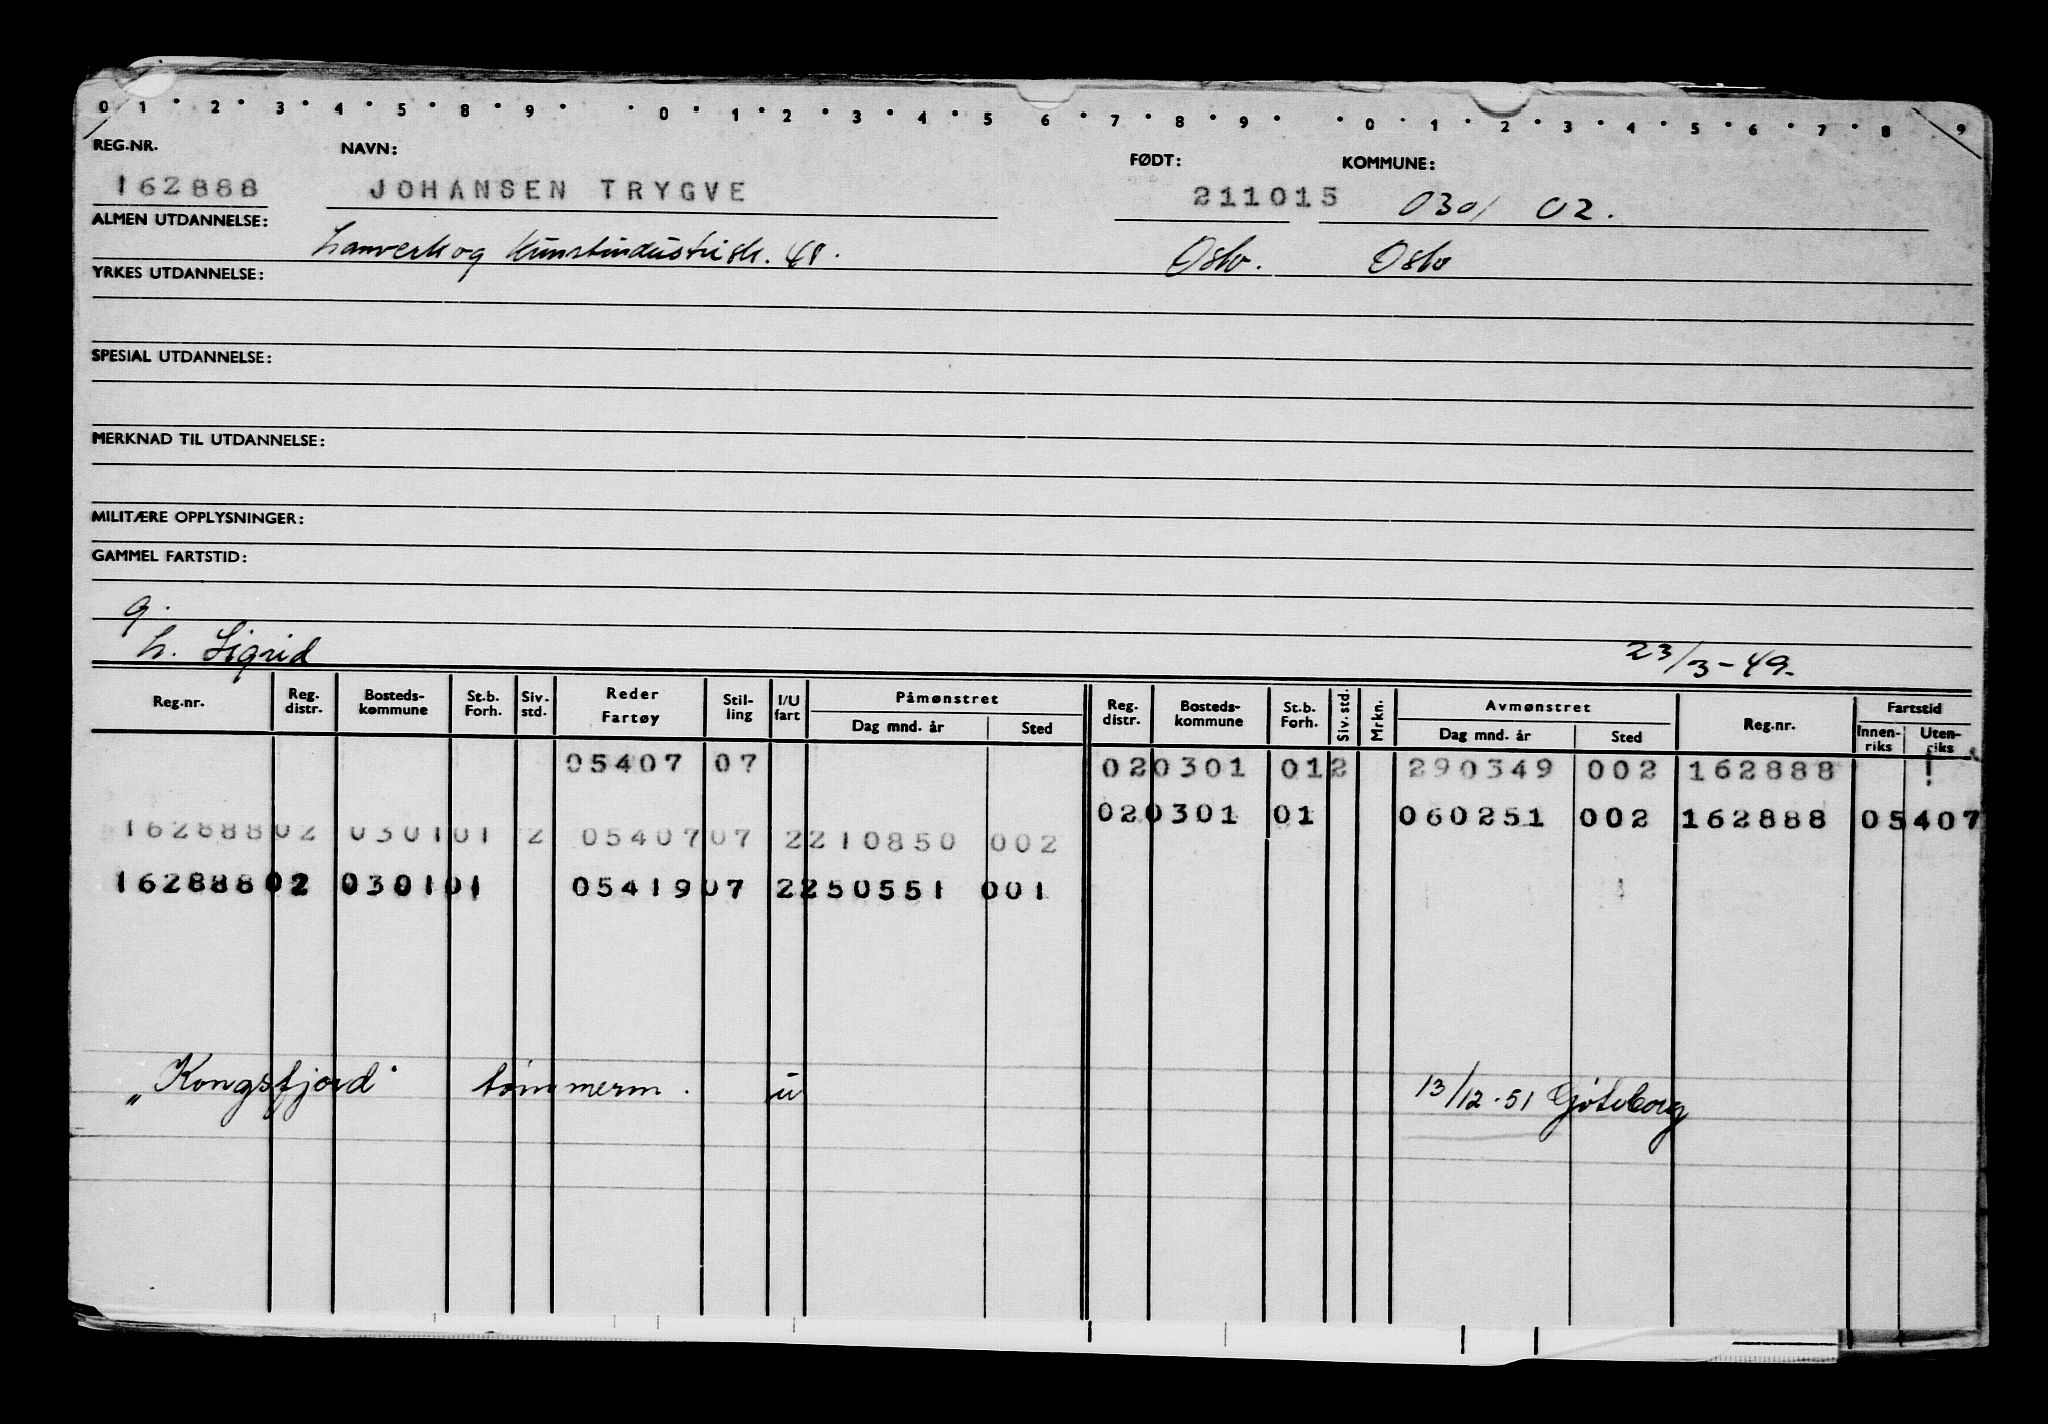 0 1 • 2 • 3 • 4 • 5 • 8 • 9 • • 0 • 1 • 2 • 3 • 4 • 5 6 • 7 • 8 • 9 • • 0 • 1 • 2 • 3 • 4 • 5 • 6 • 7 • 8 9
REG.NR. NAVN: FØDT: KOMMUNE:
162888 JOHANSEN TRYGVE 211015 0301 02.
ALMEN UTDANNELSE: og Kunstindustrisk. Oslo. Oslo
YRKES UTDANNELSE:
SPESIAL UTDANNELSE:
MERKNAD TIL UTDANNELSE:
MILITÆRE OPPLYSNINGER:
GAMMEL FARTSTID:
g.
h. Sigrid 23/3-49.
Reg.nr. Reg. distr. Bosteds- kommune St.b. Forh. Siv. std. Reder Fartøy Stil- ling I/U fart Påmønstret Dag mnd. år Sted Reg. distr. Bosteds- kommune St.b. Forh. Siv. std. Mrkn. Avmønstret Dag mnd. år Sted Reg.nr. Fartstid Innen- riks Uten- riks
05407 07 020301 012 290349 002 162888
020301 01 060251 002 162888 05407
16288802 030101 2 0540707 2210850 002
16288802 030101 0541907 2250551 001
„Kongsfjord" tømmerm. u 13/12.51 Göteborg